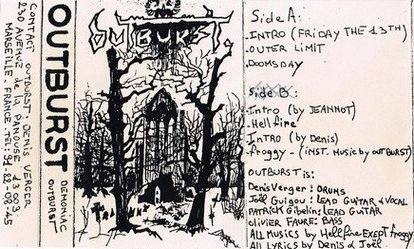 CONTACT OUTBURST: DENIS VERGER
230 AVENUE de LA PANOUSE 13009
MARSEILLE. FRANCE. TEL: 91-82-02-45
OUTBURST
DEMONIAC
OUTBURST
OUTBURST
Side A:
.INTRO (FRIDAY THE 13TH)
.OUTER LIMIT
.DOOMSDAY
Side B:
.Intro (by JEANNOT)
.Hell fire
.INTRO (by Denis)
.froggy - (INST. Music by OUTBURST)
OUTBURST is:
Denis Verger: DRUMS
Joël Guigou: LEAD GUITAR & VOCAL
PATRICK Gibelin: LEAD GUITAR
olivier FAURE: BASS
All MUSICS by Hellfire EXEPT froggy
All LYRICS by Denis & Joël